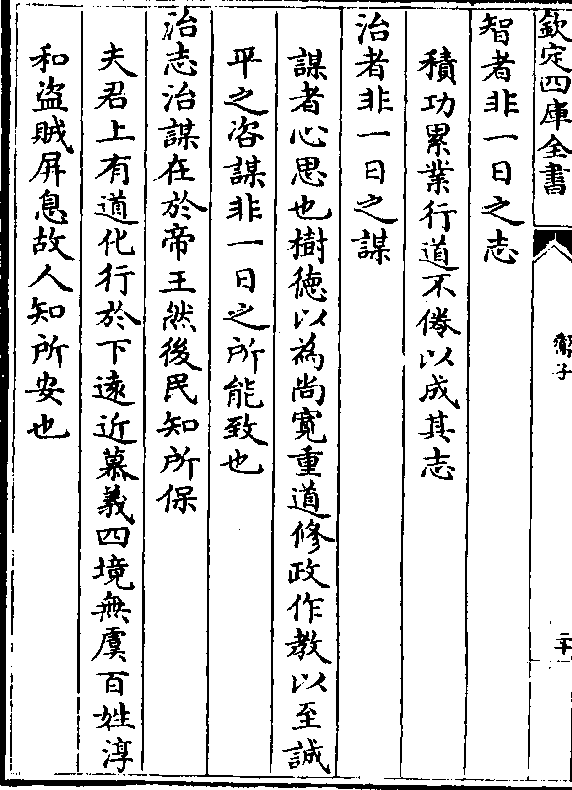 欽定四庫全書
鬻子
二十
智者非一日之志
積功累業行道不倦以成其志
治者非一日之謀
謀者心思也樹徳以為尚寛重道修政作教以至誠
平之咨謀非一日之所能致也
治志治謀在於帝王然後民知所保
夫君上有道化行於下逺近慕義四境無虞百姓淳
和盜賊屏息故人知所安也